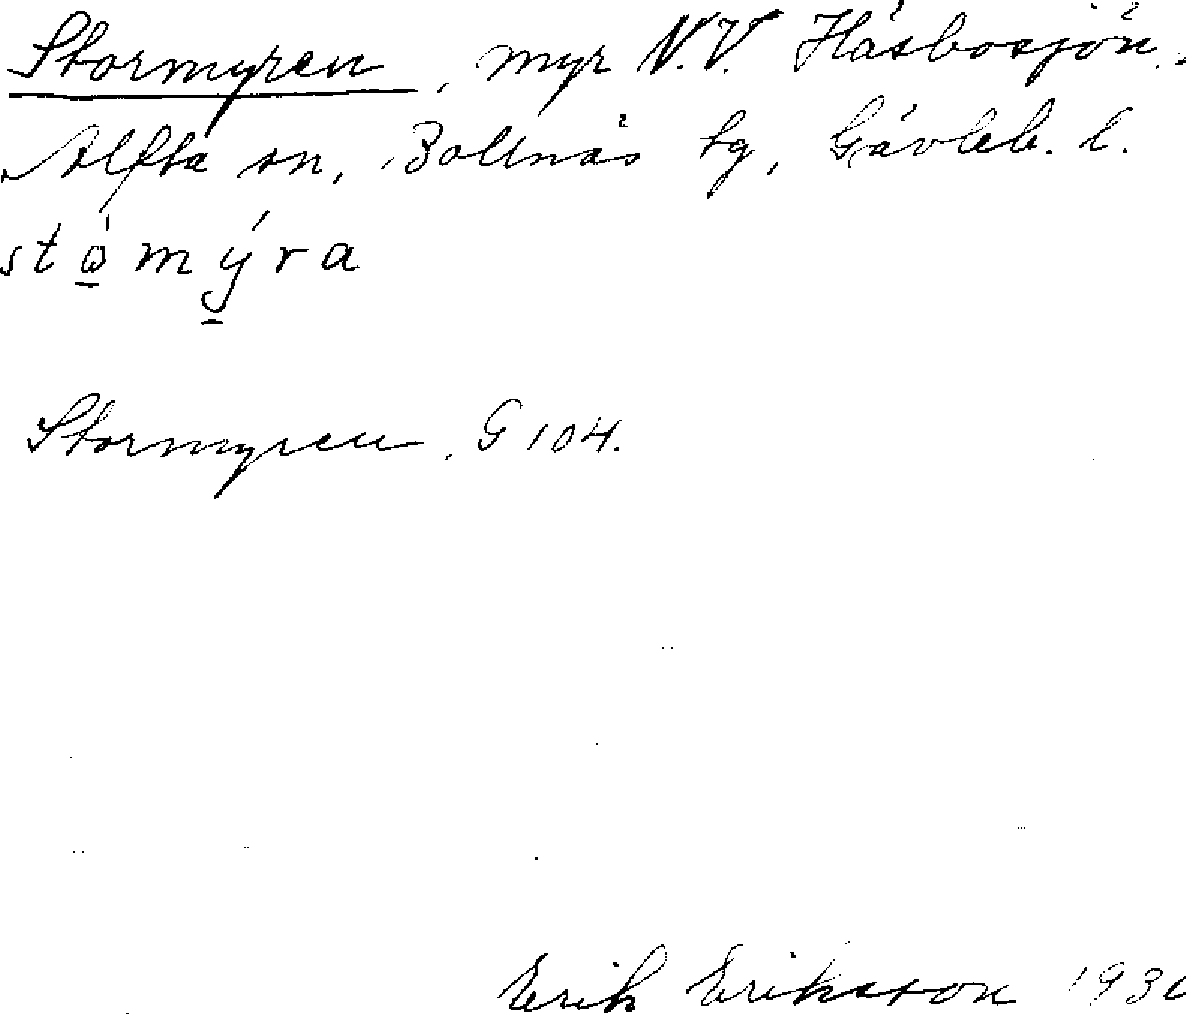 Stormyren, myr N.V. Håsbosjön.
Alfta sn, Bollnäs tg, Gävleb. l.
stǫ̀mýra
Stormyren. G 104.
Erik Eriksson